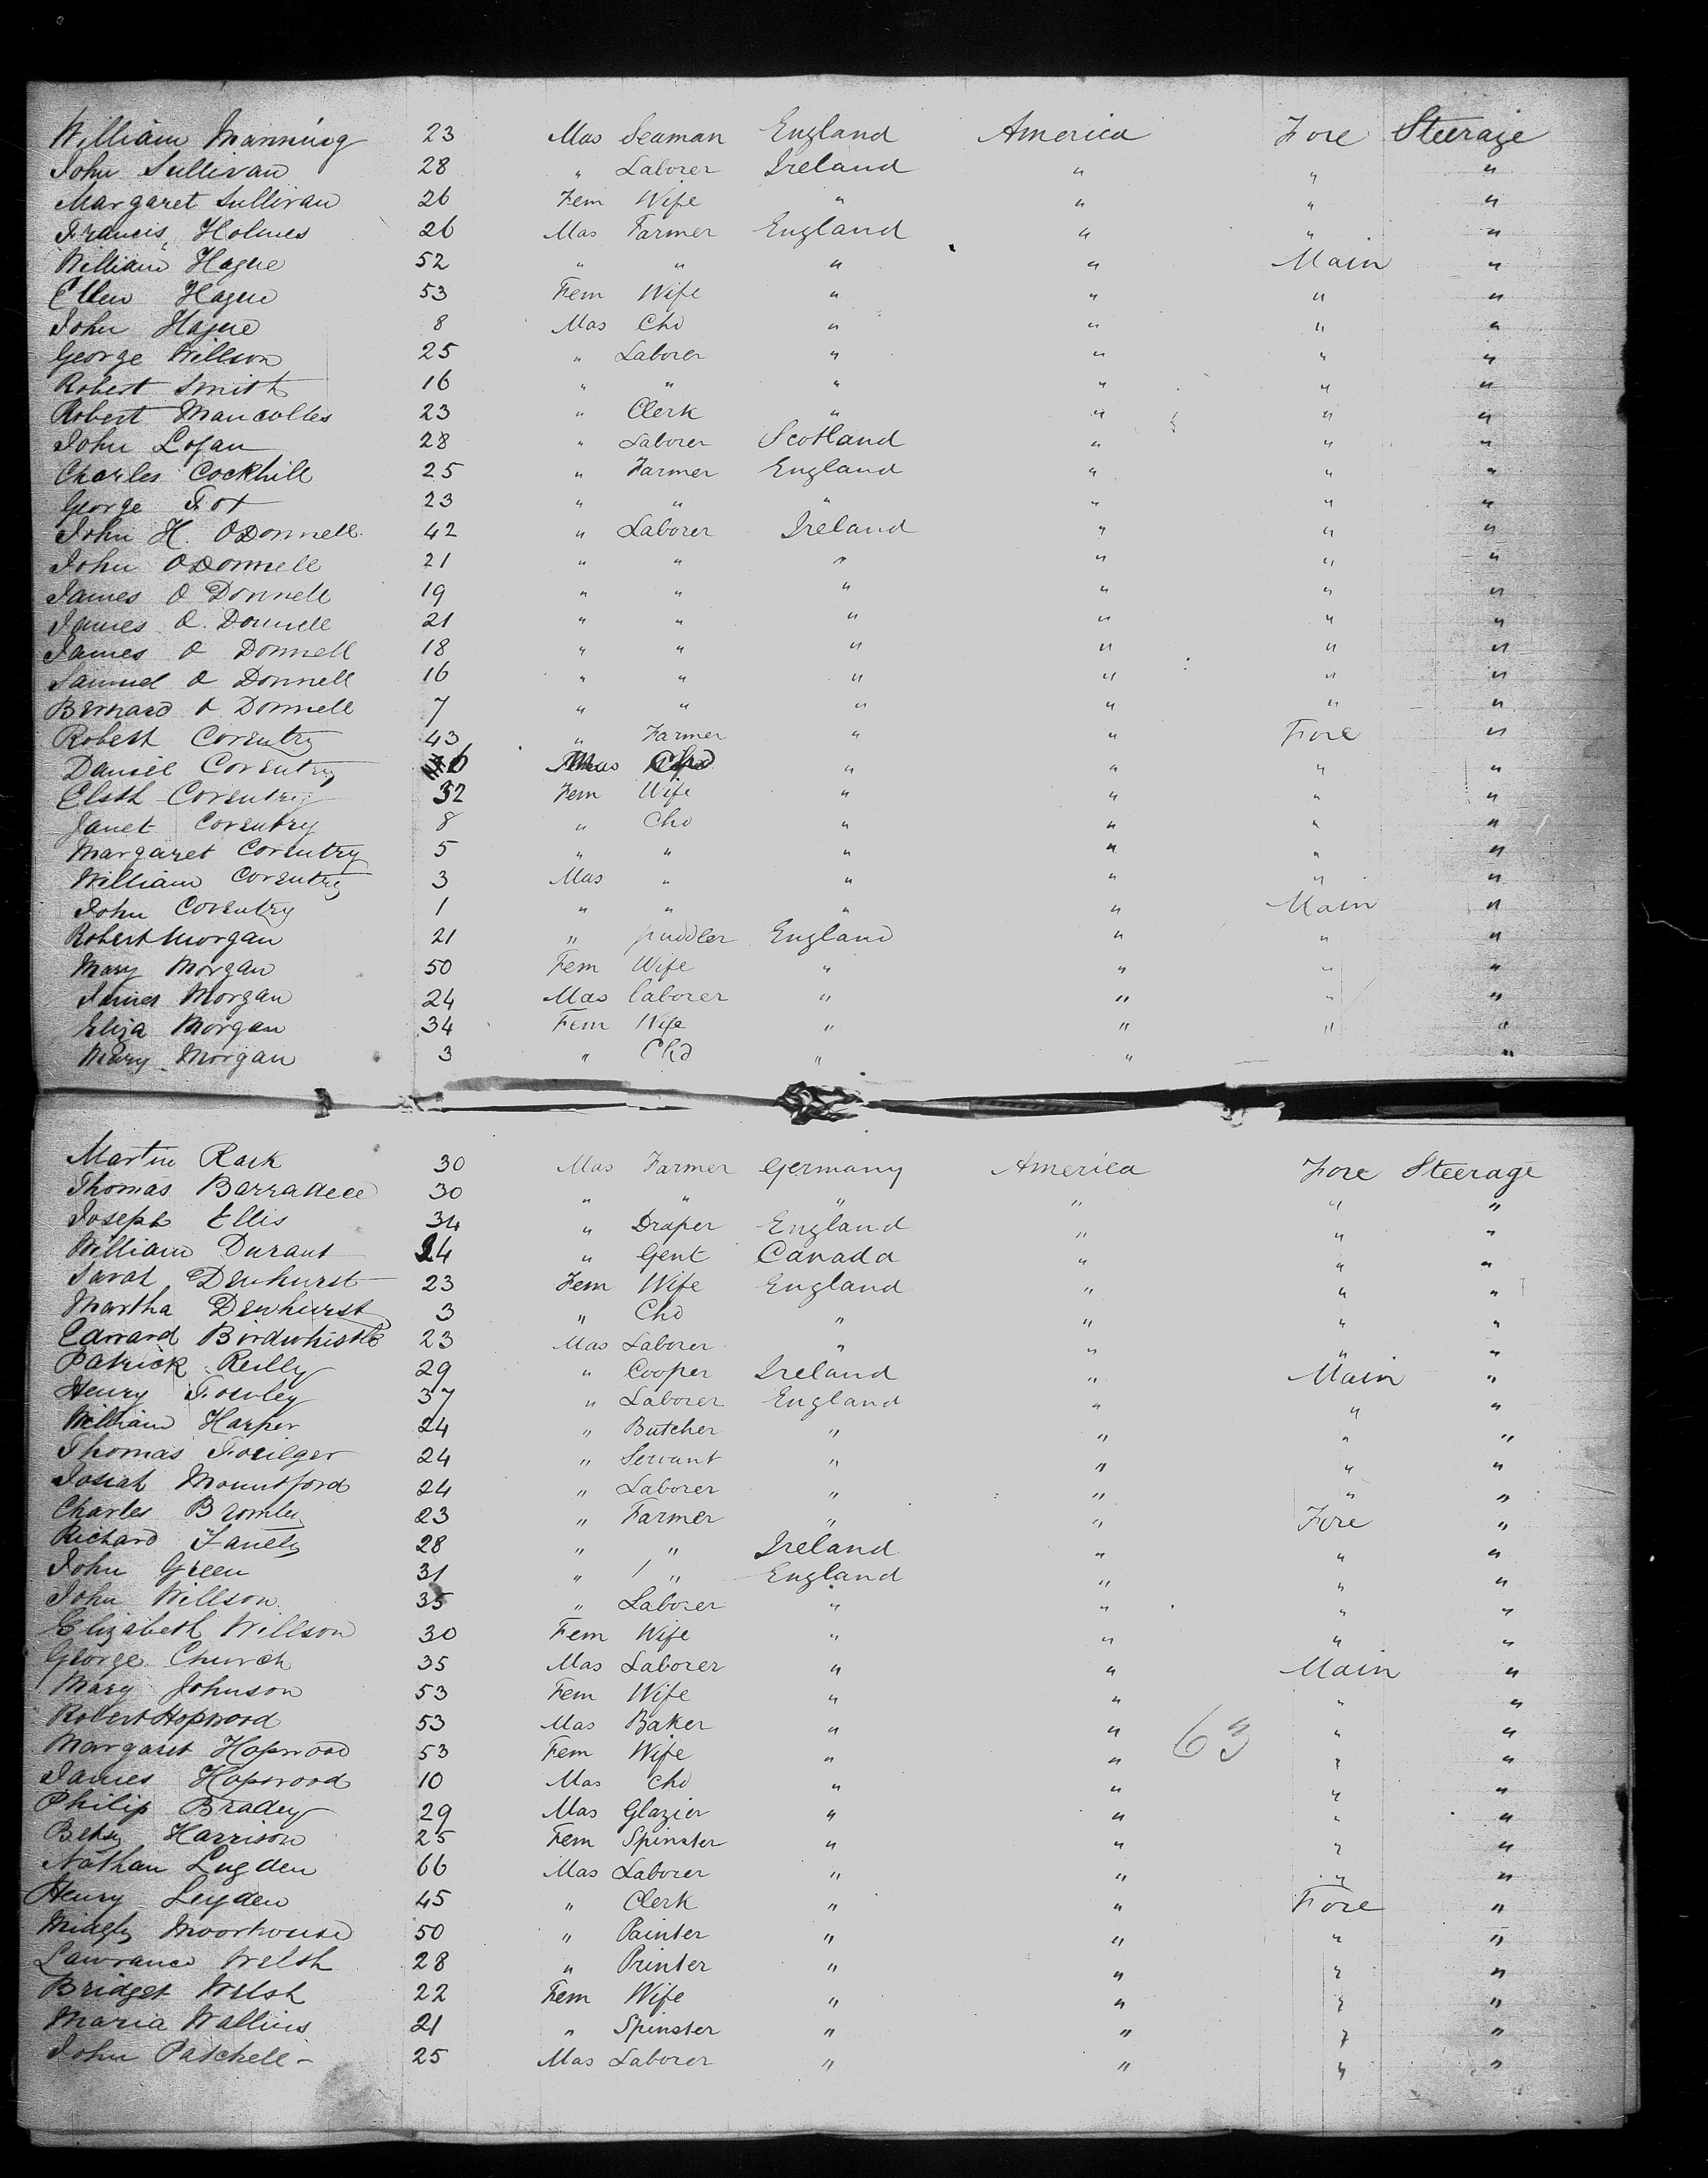 William Manning 23 Mas Seaman England America Fore Steerage
John Sullivan 28 " Laborer Ireland " " "
Margaret Sullivan 26 Fem Wife " " " "
Francis Holmes 26 Mas Farmer England " " "
William Hague 52 " " " " Main "
Ellen Hague 53 Fem Wife " " " "
John Hague 8 Mas Chd " " " "
George Willson 25 " Laborer " " " "
Robert Smith 16 " " " " " "
Robert 23 " Clerk " " " "
John Logan 28 " Laborer Scotland " " "
Charles Cockhill 25 " Farmer England " " "
George Fox 23 " " " " " "
John H. ODonnell 42 " Laborer Ireland " " "
John ODonnell 21 " " " " " "
James O Donnell 19 " " " " " "
James O. Donnell 21 " " " " " "
James O Donnell 18 " " " " " "
Samuel O Donnell 16 " " " " " "
Bernard O Donnell 7 " " " " " "
Robert Coventry 43 " Farmer " " Fore "
Daniel Coventry Mas Chd " " " "
Elsth Coventry 32 Fem Wife " " " "
Janet Coventry 8 " Chd " " " "
Margaret Coventry 5 " " " " " "
William Coventry 3 Mas " " " " "
John Coventry 1 " " " " Main "
Robert Morgan 21 " puddler England " " "
Mary Morgan 50 Fem Wife " " " "
James Morgan 24 Mas laborer " " " "
Eliza Morgan 34 Fem Wife " " " "
Mary Morgan 3 " Chd " " "
Martin Rask 30 Mas Farmer Germany America Fore Steerage
Thomas 30 " " " " " "
Joseph Ellis 34 " Draper England " " "
William Durant 24 " Gent Canada " " "
Sarah Dewhurst 23 Fem Wife England " " "
Martha Dewhurst 3 " Chd " " " "
Edward Birdwhistle 23 Mas Laborer " " " "
Patrick Reilly 29 " Cooper Ireland " Main "
Henry Fowley 37 " Laborer England " " "
William Harper 24 " Butcher " " " "
Thomas Foulger 24 " Servant " " " "
Josiah Mountford 24 " Laborer " " " "
Charles Bromley 23 " Farmer " " Fore "
Richard 28 " " Ireland " " "
John Green 31 " " England " " "
John Willson 35 " Laborer " " " "
Elizabeth Willson 30 Fem Wife " " " "
George Church 35 Mas Laborer " " Main "
Mary Johnson 53 Fem Wife " " " "
Robert Hopwood 53 Mas Baker " " 63 " "
Margaret Hopwood 53 Fem Wife " " " "
James Hopwood 10 Mas Chd " " " "
Philip Bradey 29 Mas Glazier " " " "
Betsy Harrison 25 Fem Spinster " " " "
Nathan Lugden 66 Mas Laborer " " " "
Henry Leyden 45 " Clerk " " Fore "
Midgly Moorhouse 50 " Painter " " " "
Lawrance Welsh 28 " Printer " " " "
Bridget Welsh 22 Fem Wife " " " "
Maria Wallins 21 " Spinster " " " "
John Patchell 25 Mas Laborer " " " "